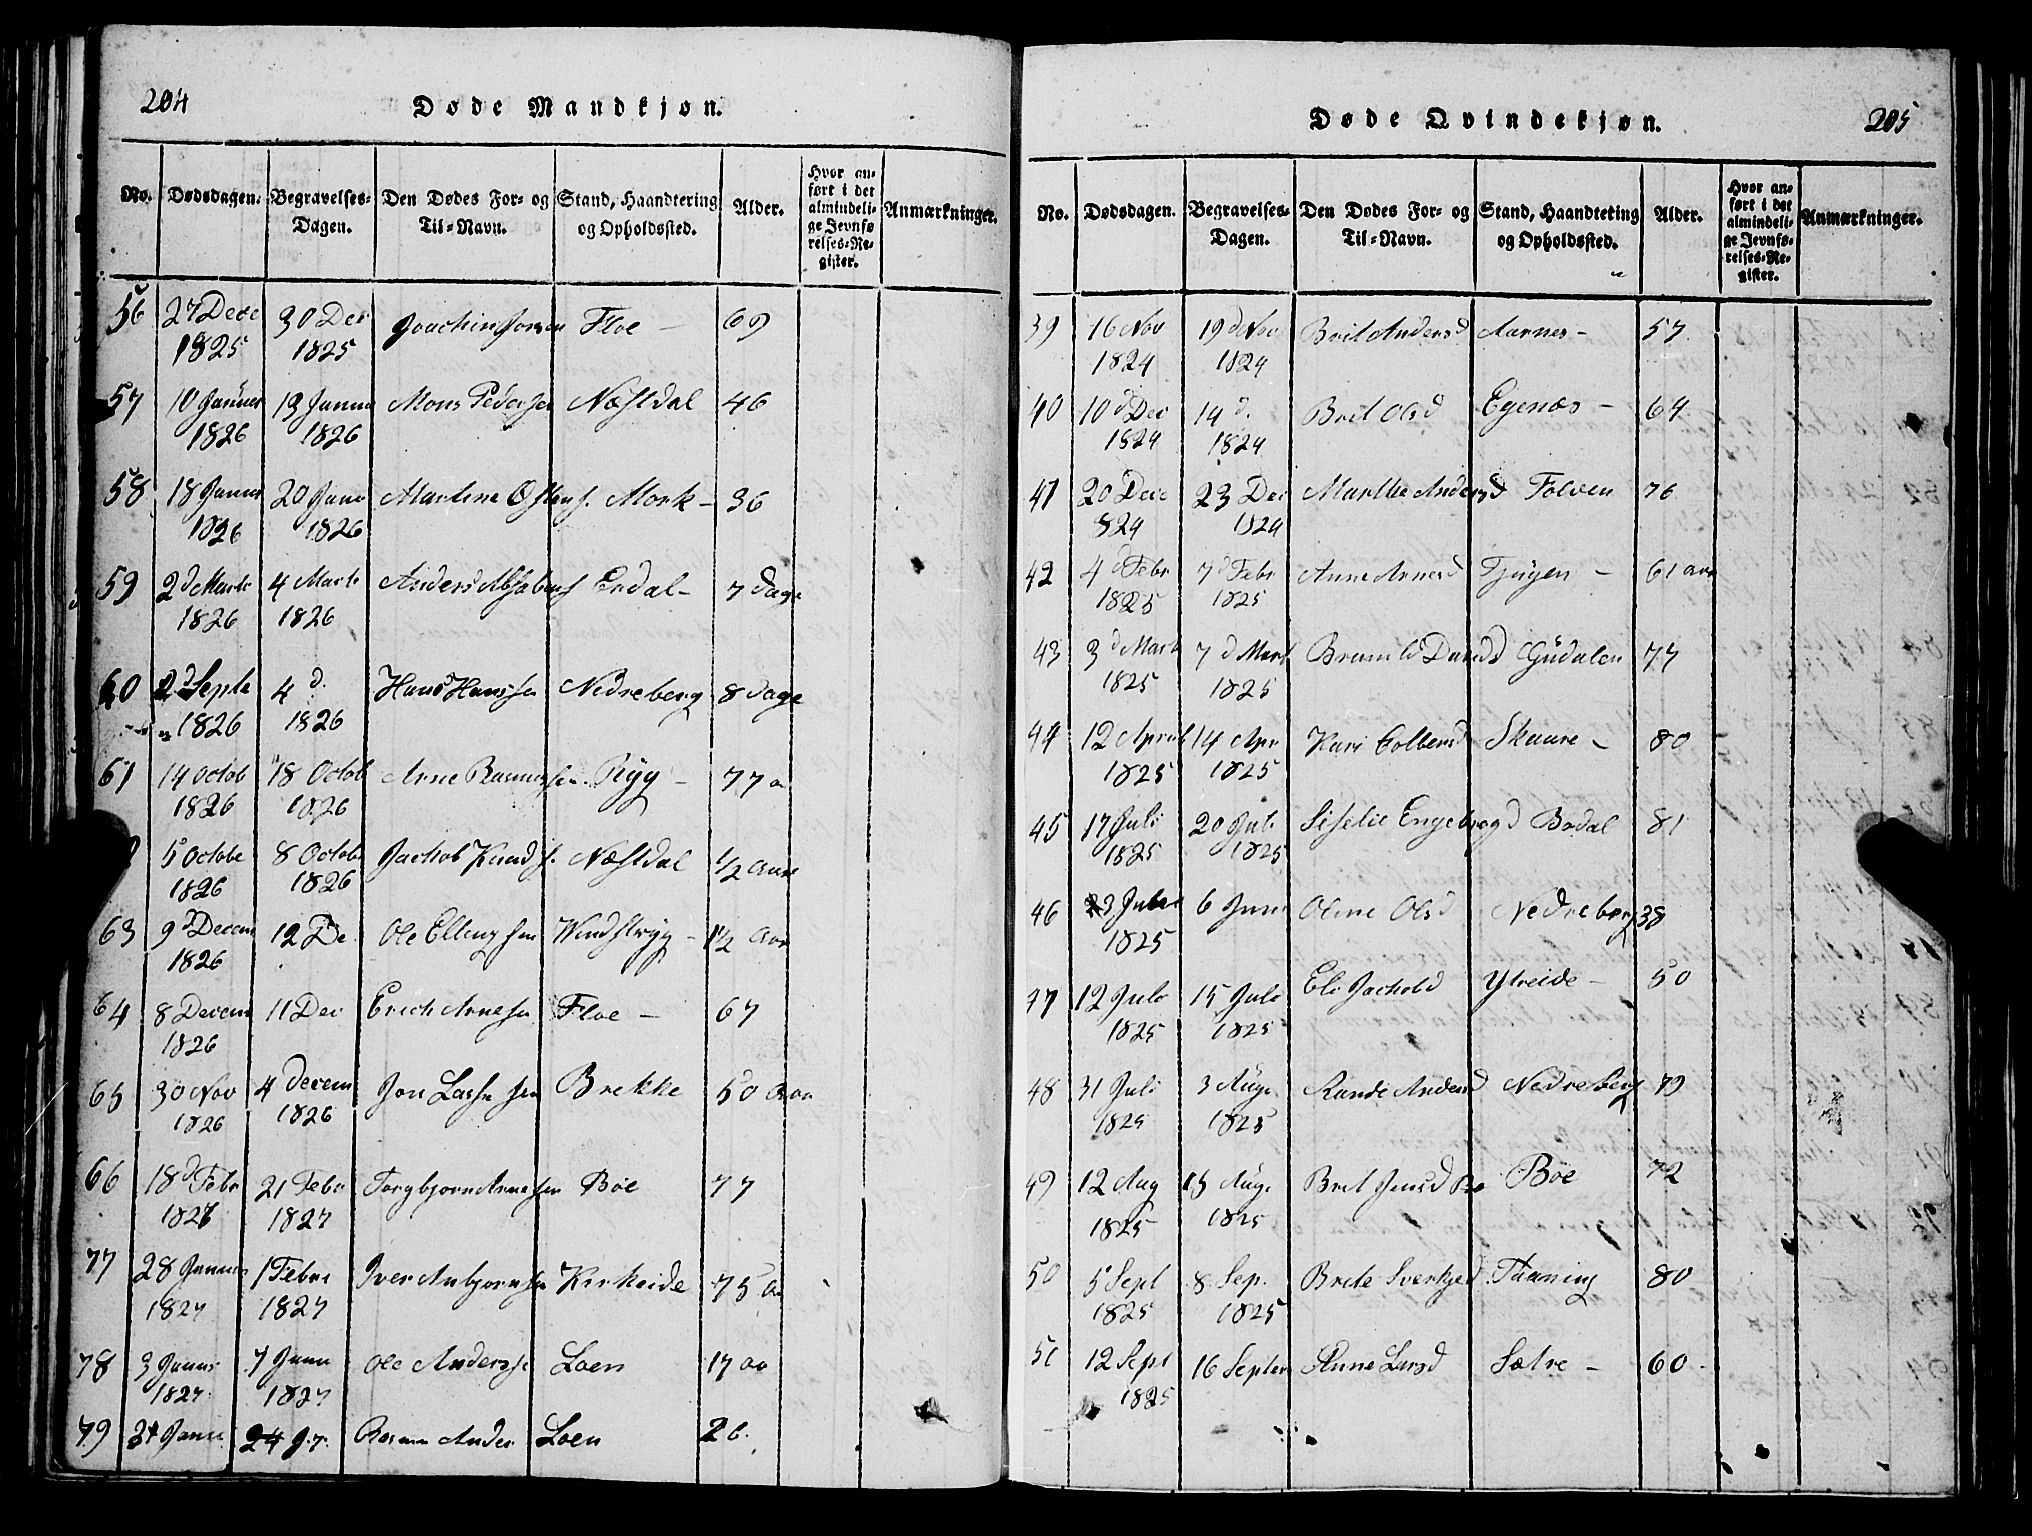 204
Døde Mandkjøn.
No. Dødsdagen. Begravelses-Dagen. Den Dødes For- og Til-Navn. Stand, Haandtering og Opholdssted. Alder. Hvor anført i det almindelige Jevnførelses-Register. Anmærkninger.
56 27 Dece 30 Dec Joachim Jonsen Floe – 69
1825 1825
57 10 Januer 13 Janua Mons Pedersen Næstdal 46
1826 1826
58 18 Janua 20 Janu Mork – 36
1826 1826
59 2d Marti 4 Marti Anders Erdal – 7 dage
1826 1826
60 2d Septe 4 d. Hans Hanssen Nedreberg 8 dage
1826 1826
61 14 Octob 18 Octob Arne Rasmussen Ryg – 77 a
1826 1826
5 Octobe 8 Octob Jachob Knuds. Næstdal 1/2 Aar
1826 1826
63 9d Decem 12 De Ole Ellingsen – 1 1/2 Aar
1826
64 8 Decem 11 Dec Erich Arnesen Floe – 67
1826
65 30 Nov 4 Decem Jon Lassesen Brekke 50 Aar
1826 1826
66 18d Febr 21 Febr Torgbjørn Arnesen Bøe 77
1827 1827
77 28 Janua 1 Febru Iver Anbjornsen Kirkeide 75 Aa
1827 1827
78 3 Janua 7 Janu Ole Anderss Loen 17 aa
1827 1827
79 Janu Rasmus Anders Loen 26.
Døde Qvindekjøn.
205
No. Dødsdagen. Begravelses-Dagen. Den Dødes For- og Til-Navn. Stand, Haandtering og Opholdssted. Alder. Hvor anført i det almindelige Jevnførelses-Register. Anmærkninger.
39 16 Nov 19d Nov Brit Andersd Aarnes – 57
1824 1824
40 10d Dec 14 d. Brit Olsd Egenæs – 64
1824 1824
41 20 Dece 23 Dec Marthe Andersd Folven 76
824 1824
42 4d Febr 7d Febr Anne Arnesd Tjugen – 61 aar
1825 1825
43 3d Marti 7d Mart Gudalen 77
1825 1825
44 12 April 14 Apr Kari Colbensd Skaare – 80
1825 1825
45 17 Juli 20 Juli Siselie Engebregd Brdal 81
1825 1825
46 3 6 Oline Olsd Nedreberg 38
1825
47 12 Juli 15 Juli Eli Jachobd Ytreide – 50
1825 1825
48 31 Juli 3 Augu Rande Andersd Nedreberg 79
1825 1825
49 12 Aug 15 Augu Brit Jensd Bø Bøe 72
1825 1825
50 5 Sept 8 Sep. Brite Sverkjed Taaning 80
1825 1825
51 12 Sept 16 Septer Anne Larsd Sætre – 60 –
1825